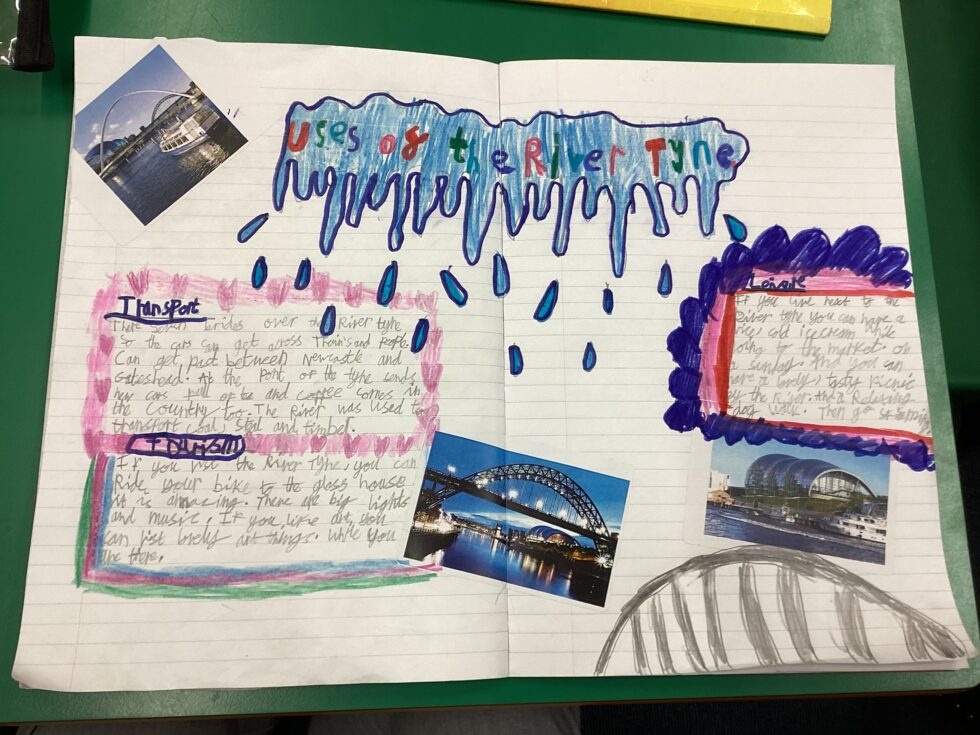 Uses of the River Tyne
Transport
There seven brides over the River tyne
So the cars can get across Trains and People
Can get past between Newcastle and
Gateshead. At the Port of the tyne sends
new cars full of tea and coffee comes in
the Country too. The River was used to
transport coal, Steal and timbel.
Tourism
If you visit the River Tyne, you can
Ride your bike to the glass house
it is amazing. There are big lights
and music. If you like art, you
can visit lovely art things. while you
the there.
Leisure
If you live next to the
River tyne you can have a
nice cold ice cream while
going to the market on
a sunday. And you can
have a lovely, tasty Picnic
by the River. And a Relaxing
dog walk. Then go